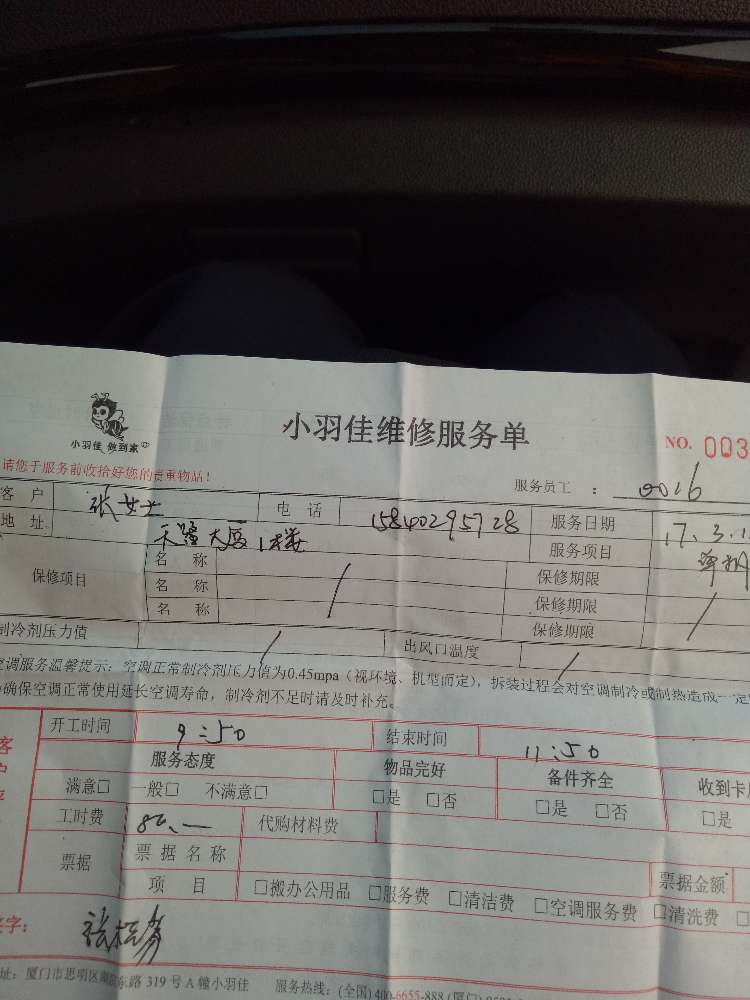 小羽佳 做到家
小羽佳维修服务单
NO. 003
请您于服务前收拾好您的贵重物品！
服务员工 ： 0016
客 户 张女士 电 话 15840295728 服务日期 17.3.1
地 址 天隆大厦1楼 服务项目
保修项目 名 称 / 保修期限 /
名 称 保修期限
名 称 保修期限
制冷剂压力值 / 出风口温度 /
空调服务温馨提示：空调正常制冷剂压力值为0.45mpa（视环境、机型而定），拆装过程会对空调制冷或制热造成一定
确保空调正常使用延长空调寿命，制冷剂不足时请及时补充。
开工时间 9:50 结束时间 11:50
服务态度 物品完好 备件齐全 收到卡
满意□ 一般□ 不满意□ □是 □否 □是 □否 □是
工时费 80.— 代购材料费
票据 票 据 名 称 票据金额
项 目 □搬办公用品 □服务费 □清洁费 □空调服务费 □清洗费
签字：
址：厦门市思明区 东路 319 号 A 幢小羽佳 服务热线：(全国)400-6655-888 (厦门)